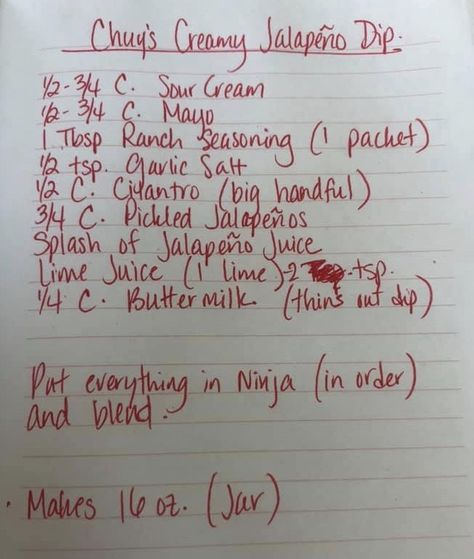 Chuy's Creamy Jalapeño Dip.
1/2 - 3/4 C. Sour Cream
1/2 - 3/4 C. Mayo
1 Tbsp Ranch Seasoning (1 packet)
1/2 tsp. Garlic Salt
1/2 C. Cilantro (big handful)
3/4 C. Pickled Jalapeños
Splash of Jalapeño Juice
Lime Juice (1 lime) - 2 tsp.
1/4 C. Buttermilk. (thins out dip)
Put everything in Ninja (in order)
and blend.
· Makes 16 oz. (Jar)